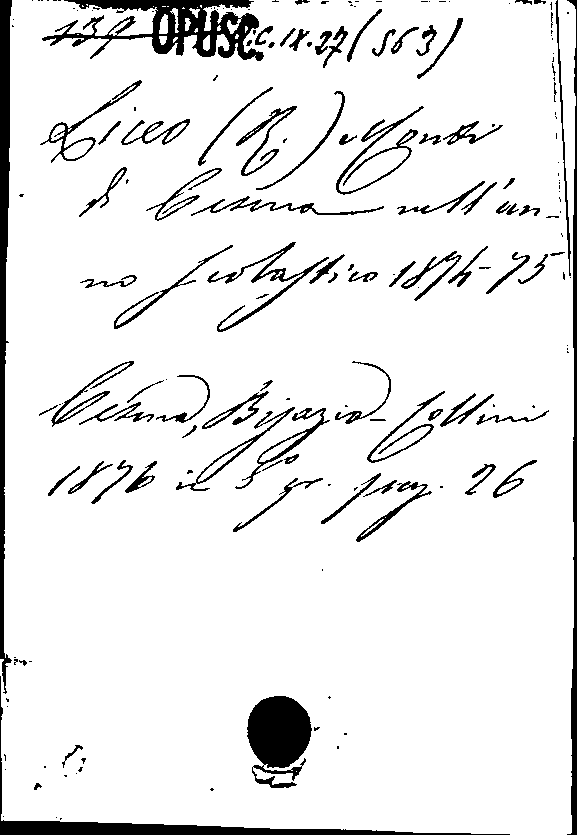 139 OPUSC. C.IX.27 (563)
Liceo (R.) Monti
di Cesena nell'an-
no scolastico 1874-75
Cesena, Biasini-Collini
1876 in 8° gr. pag. 26